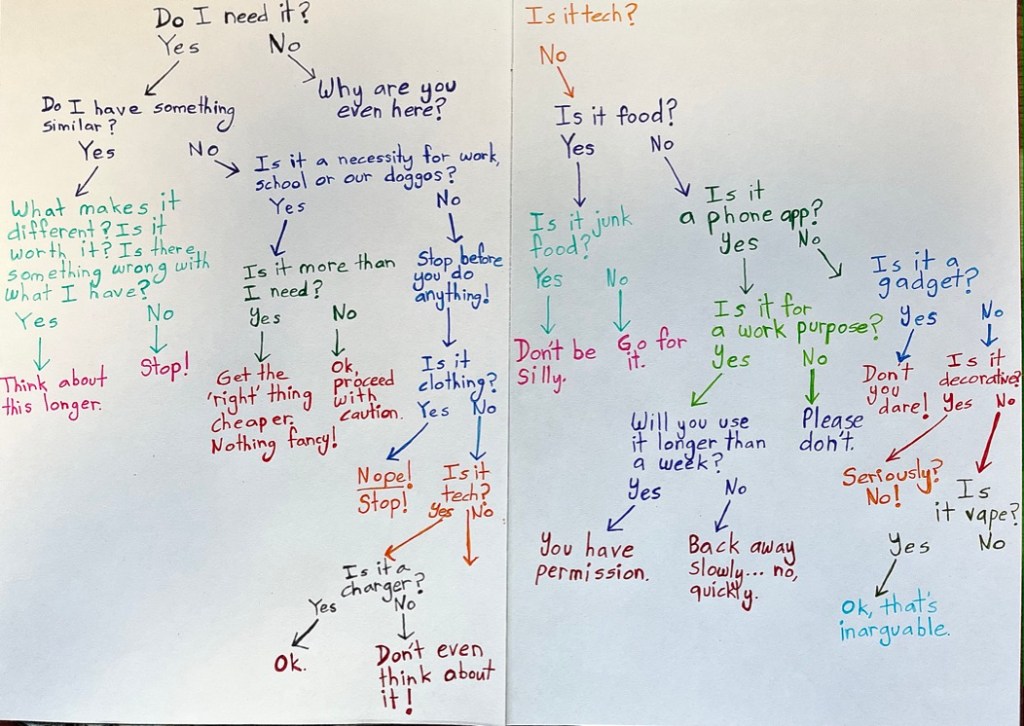 Do I need it?
Yes
No
Do I have something
similar?
Why are you
even here?
Yes
No
Is it a necessity for work,
school or our doggos?
What makes it
different? Is it
worth it? Is there
something wrong with
what I have?
Yes
No
Is it more than
I need?
Stop before
you do
anything!
Yes
No
Yes
No
Think about
this longer.
Stop!
Get the
'right' thing
cheaper.
Nothing fancy!
Ok,
proceed
with
caution.
Is it
clothing?
Yes
No
Nope!
Stop!
Is it
tech?
Yes
No
Is it a
charger?
Yes
No
Ok.
Don't even
think about
it!
Is it tech?
No
Is it food?
Yes
No
Is it junk
food?
Is it
a phone app?
Yes
No
Yes
No
Is it a
gadget?
Don't be
silly.
Go for
it.
Is it for
a work purpose?
Yes
No
Yes
No
Don't
you
dare!
Is it
decorative?
Yes
No
Will you use
it longer than
a week?
Please
don't.
Yes
No
Seriously?
No!
Is
it vape?
You have
permission.
Back away
slowly... no,
quickly.
Yes
No
Ok, that's
inarguable.